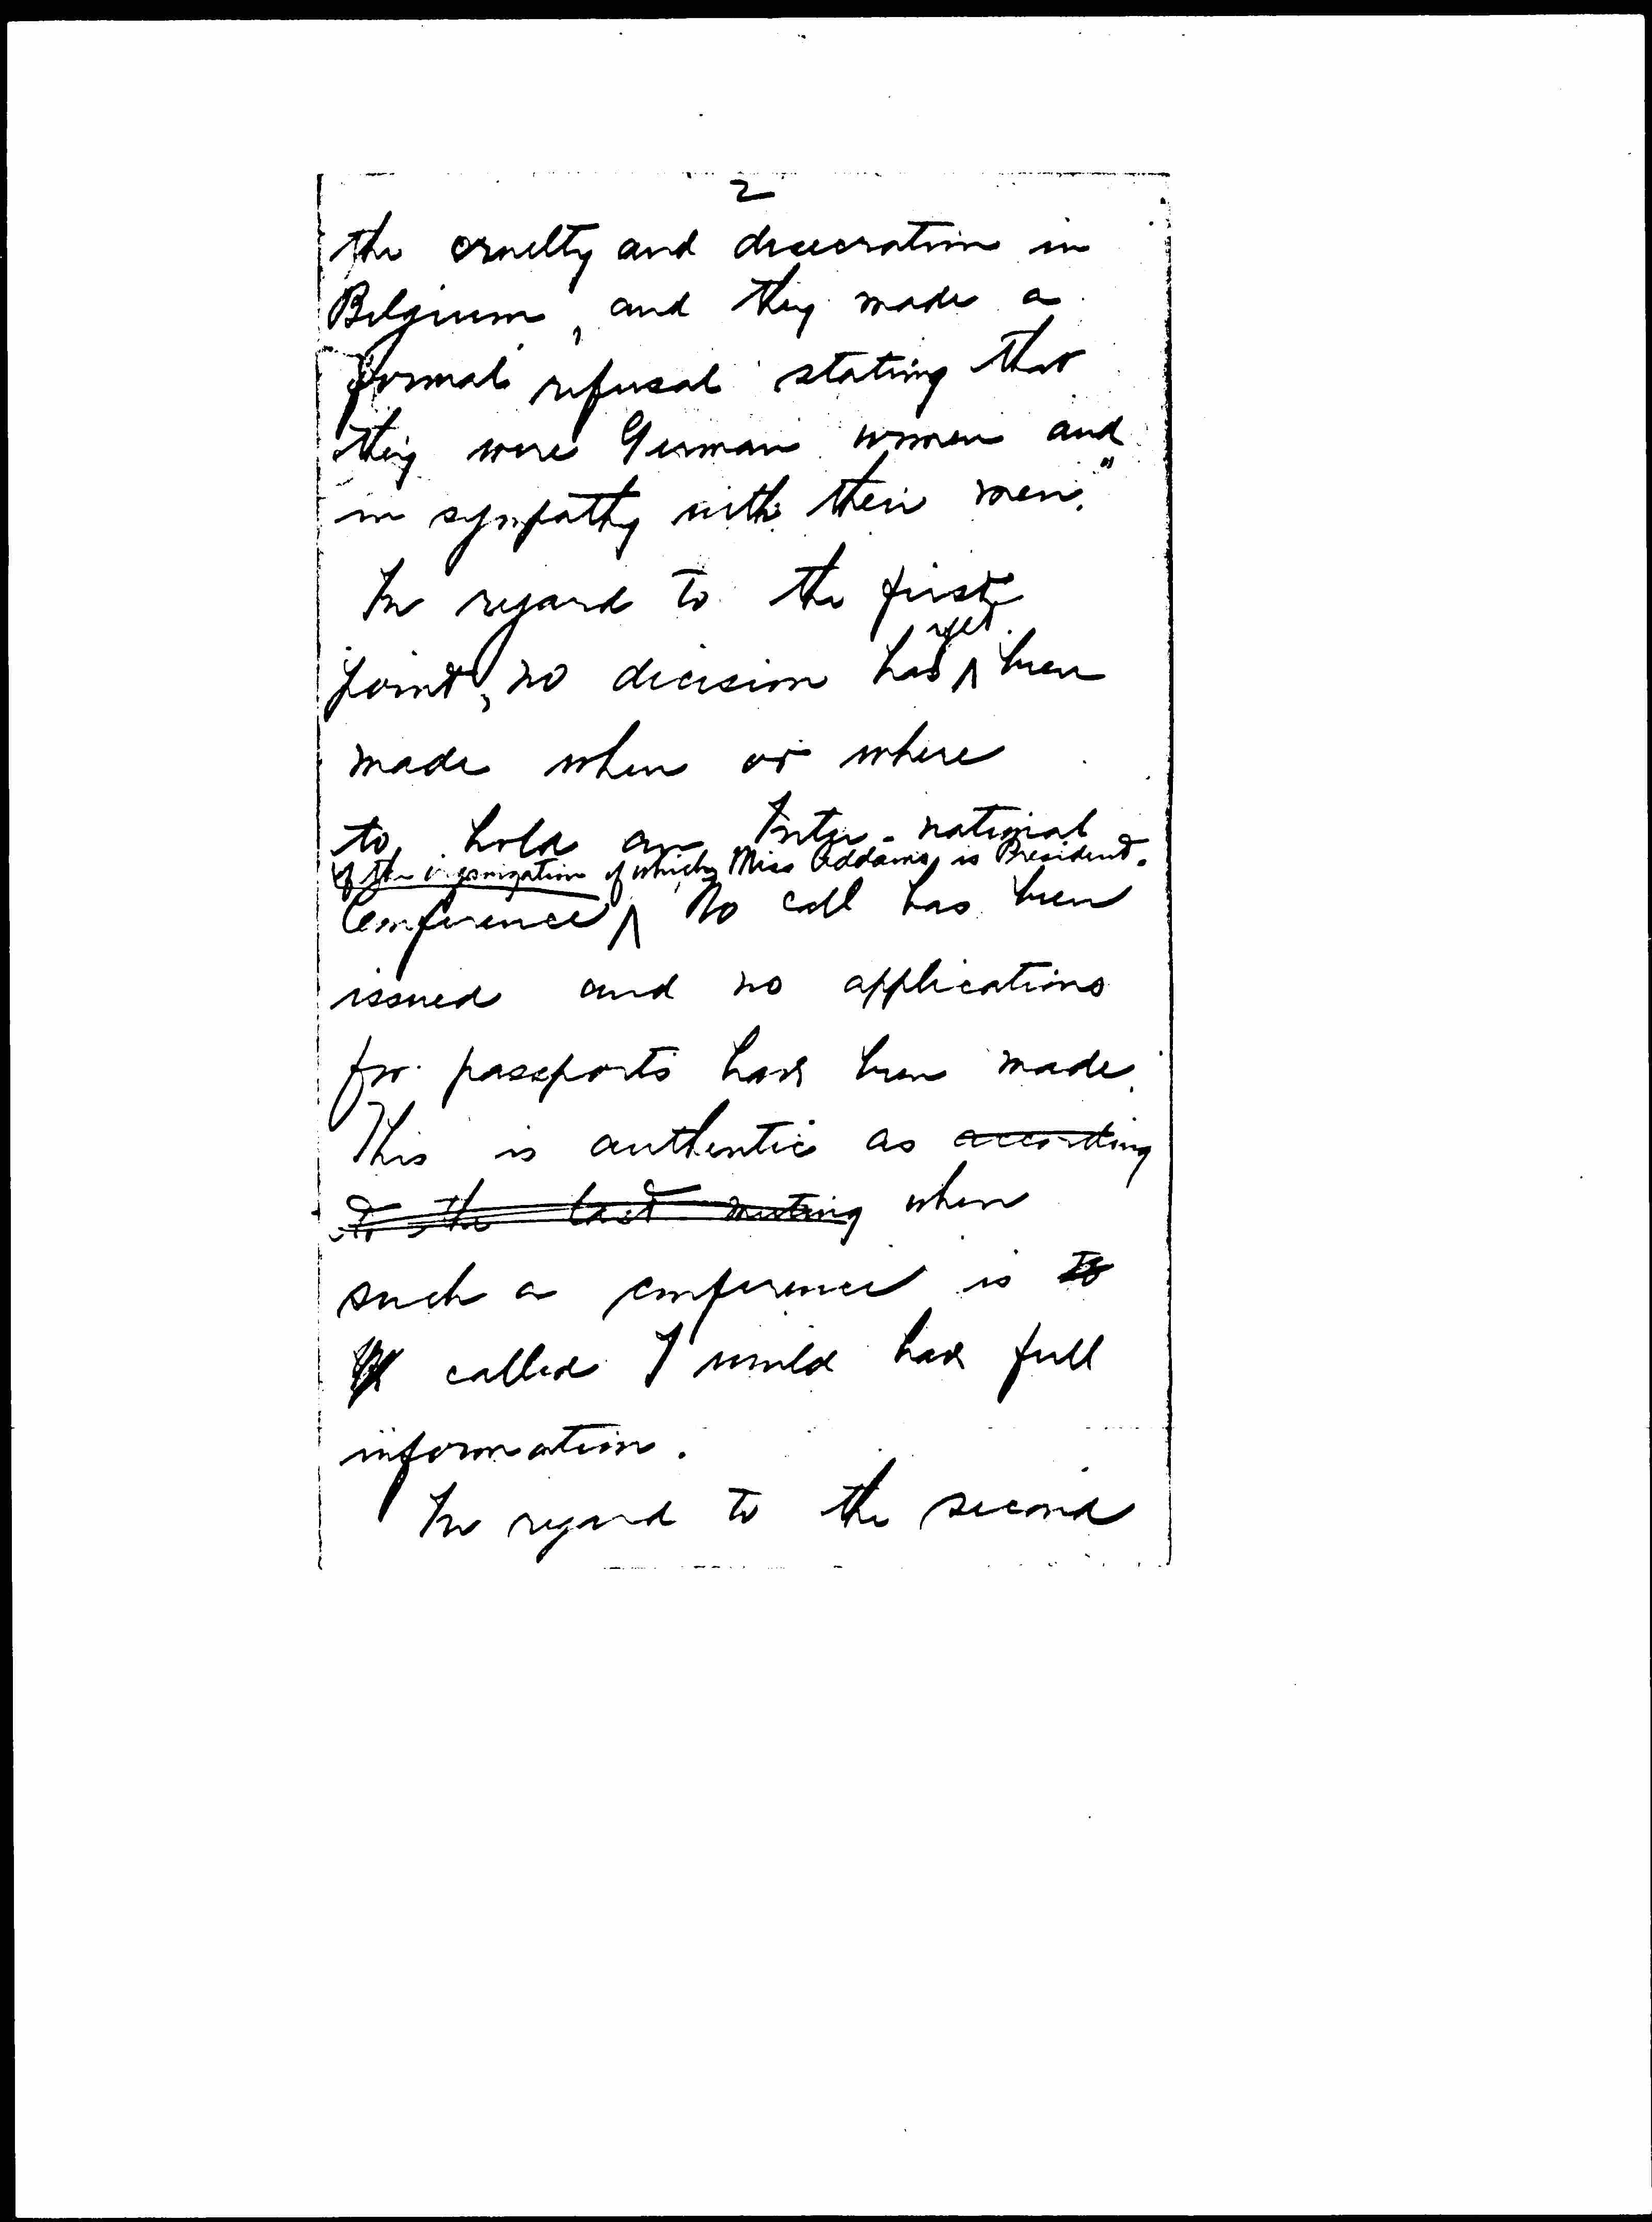 2
the cruelty and desecration in
Belgium, and they made a
formal refusal stating that
they were German women and
in sympathy with their men."
In regard to the first
yet
point, no decision has ^ been
made when or where
to hold an Inter-national
of the organization of which Miss Addams is President.
Conference ^ No call has been
issued and no applications
for passports have been made.
This is authentic as according
to the last meeting when
such a conference is to
be called I would have full
information.
In regard to the second